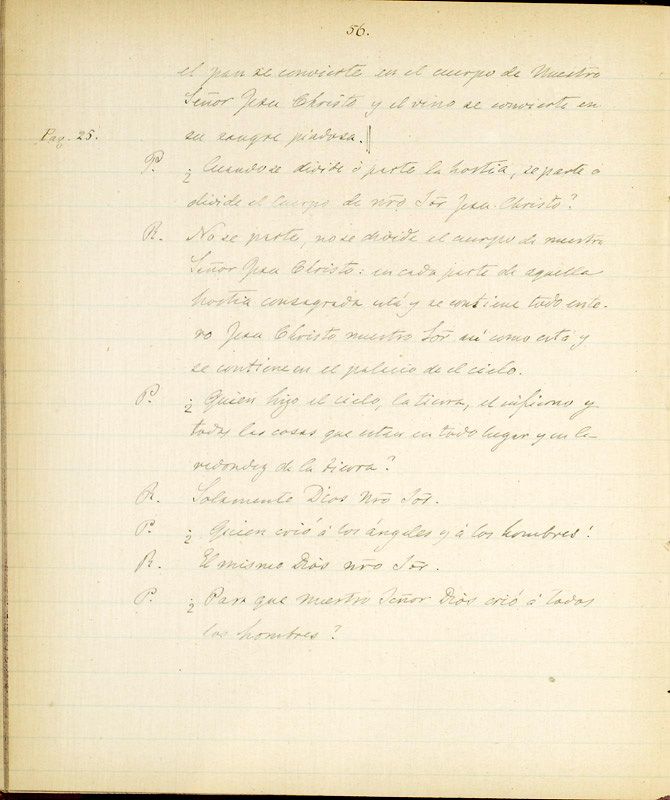 56.
el pan se convierte en el cuerpo de Nuestro
Señor Jesu Christo y el vino se convierte en
Pag. 25. su sangre piadosa.||
P. ¿ Cuando se divide ó parte la hostia, se parte o
divide el Cuerpo de nrõ Sõr Jesu-Christo?
R. No se parte, no se divide el cuerpo de nuestro
Señor Jesu Christo: en cada parte de aquella
hostia consagrada está y se contiene todo ente-
ro Jesu Christo nuestro Sõr así como está y
se contiene en el palacio de el cielo.
P. ¿ Quien hizo el cielo, la tierra, el infierno y
todas las cosas que estan en todo lugar y en la
redondez de la tierra?
R. Solamente Dios nrõ Sõr.
P. ¿ Quien crió á los ángeles y á los hombres?
R. El mismo Dios nrõ Sõr.
P. ¿ Para que nuestro Señor Dios crió á todos
los hombres?